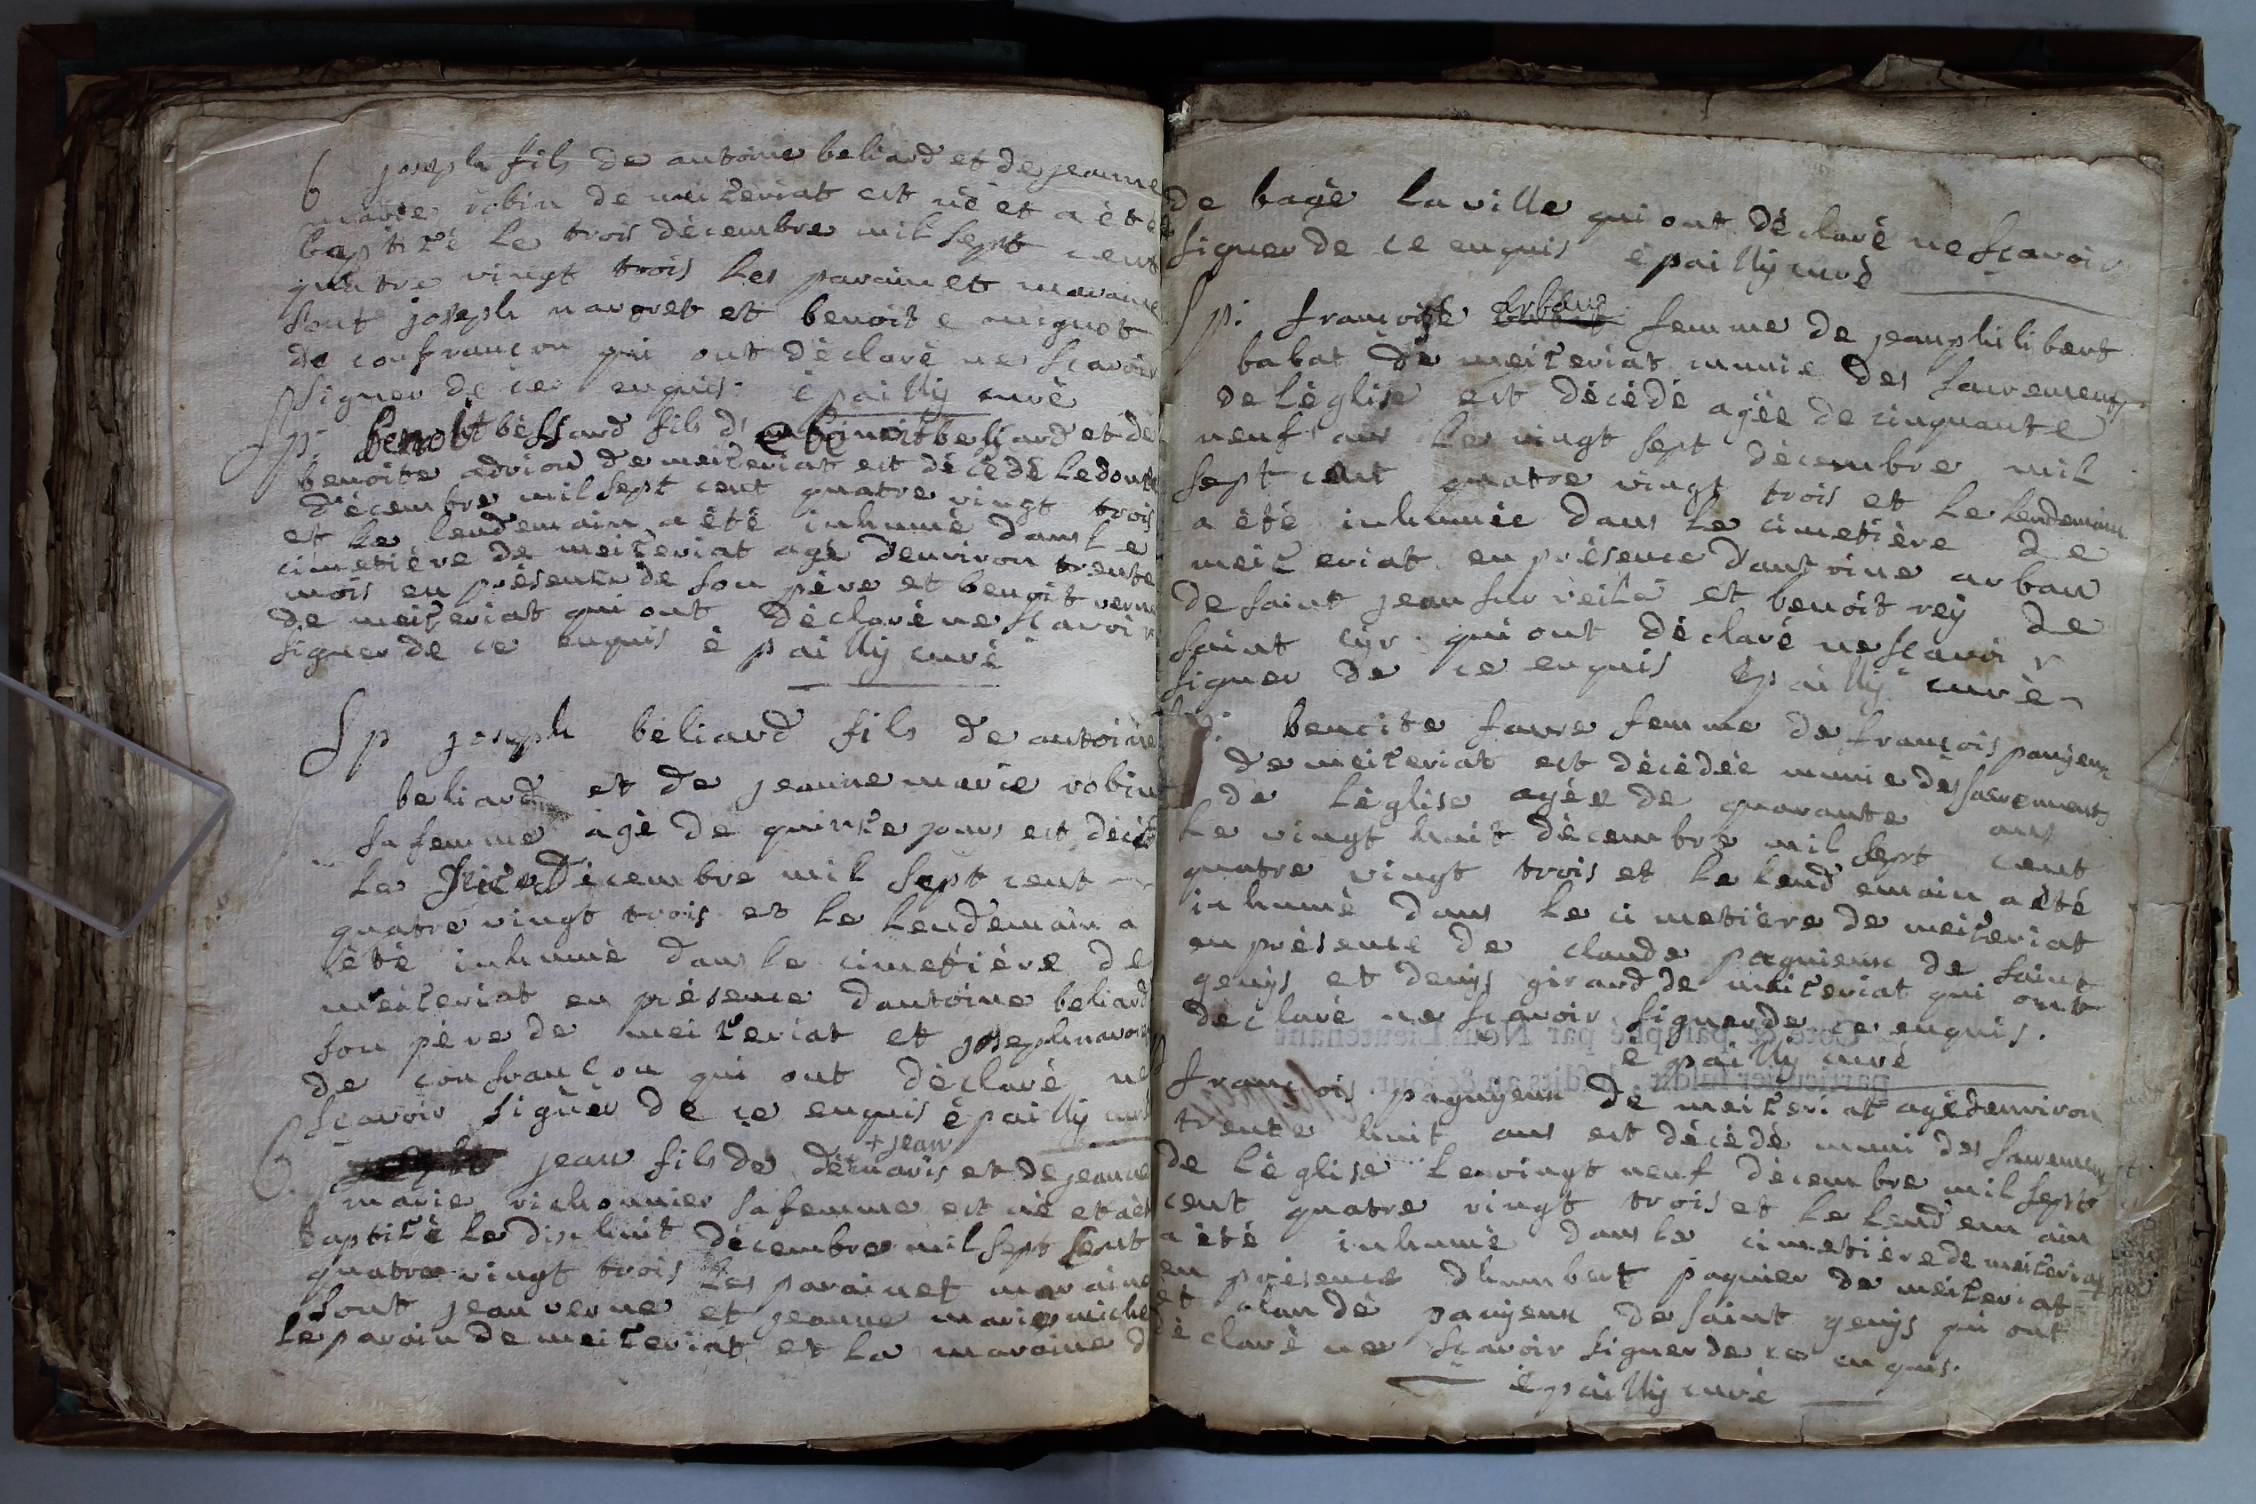 B joseph fils de antoine beliard et de jeanne
marie robin de meizeriat est né et a été
baptizé le trois décembre mil sept cent
quatre vingt trois les parain et maraine
sont joseph navoret et benoite mignot
de confrançon qui ont déclaré ne sçavoir
signer de ce enquis épailly curé
Sp. benoit béssard fils de et de
benoite adrion de meizeriat est décédé le douze
décembre mil sept cent quatre vingt trois
et le lendemain a été inhumé dans le
cimetiére de meizeriat agé denviron trente
mois en présence de son pére et benoit verne
de meizeriat qui ont déclaré ne sçavoir
signer de ce enquis épailly curé
Sp joseph béliard fils de antoine
beliard et de jeanne marie robin
sa femme agé de quinze jours est décéd
le décembre mil sept cent
quatre vingt trois et le lendemain a
été inhumé dans le cimetiére de
meizeriat en présence dantoine beliard
son pére de meizeriat et joseph navoret
de confrançon qui ont déclaré ne
sçavoir signer de ce enquis épailly curé
+ jean
B. jean fils de demaris et de jeanne
marie richonnier sa femme est né et a été
baptizé le dix huit décembre mil sept cent
quatre vingt trois les parain et maraine
sont jean verne et jeanne marie miche
le parain de meizeriat et la maraine d
de bagé la ville qui ont déclaré ne sçavoir
signer de ce enquis épailly curé
arban
Sp. françoise femme de jean philibert
babat de meizeriat munie des sacremens
de léglise est décédé agée de cinquante
neuf ans le vingt sept décembre mil
sept cent quatre vingt trois et le lendemain
a été inhumée dans le cimetiére de
meizeriat en présence dantoine arban
de saint jean sur veile et benoit rey de
saint cyr qui ont déclaré ne sçavoir
signer de ce enquis épailly curé
Sp. benoite favre femme de françois panjeux
de meizeriat est décédée munie des sacremens
de léglise agée de quarante ans
le vingt huit décembre mil sept cent
quatre vingt trois et le lendemain a été
inhumé dans le cimetiére de meizeriat
en présence de claude pagnieux de saint
genys et denys girard de meizeriat qui ont
déclaré ne sçavoir signer de ce enquis.
épailly curé
françois pagnyeux de meizeriat agé denviron
trente huit ans est décédé muni des sacremens
de léglise le vingt neuf décembre mil sept
cent quatre vingt trois et le lendemain
a été inhumé dans le cimetiére de meizeriat
en présence dhumbert pagnier de meizeriat
et claude panjeux de saint genys qui ont
déclaré ne sçavoir signer de ce enquis.
épailly curé